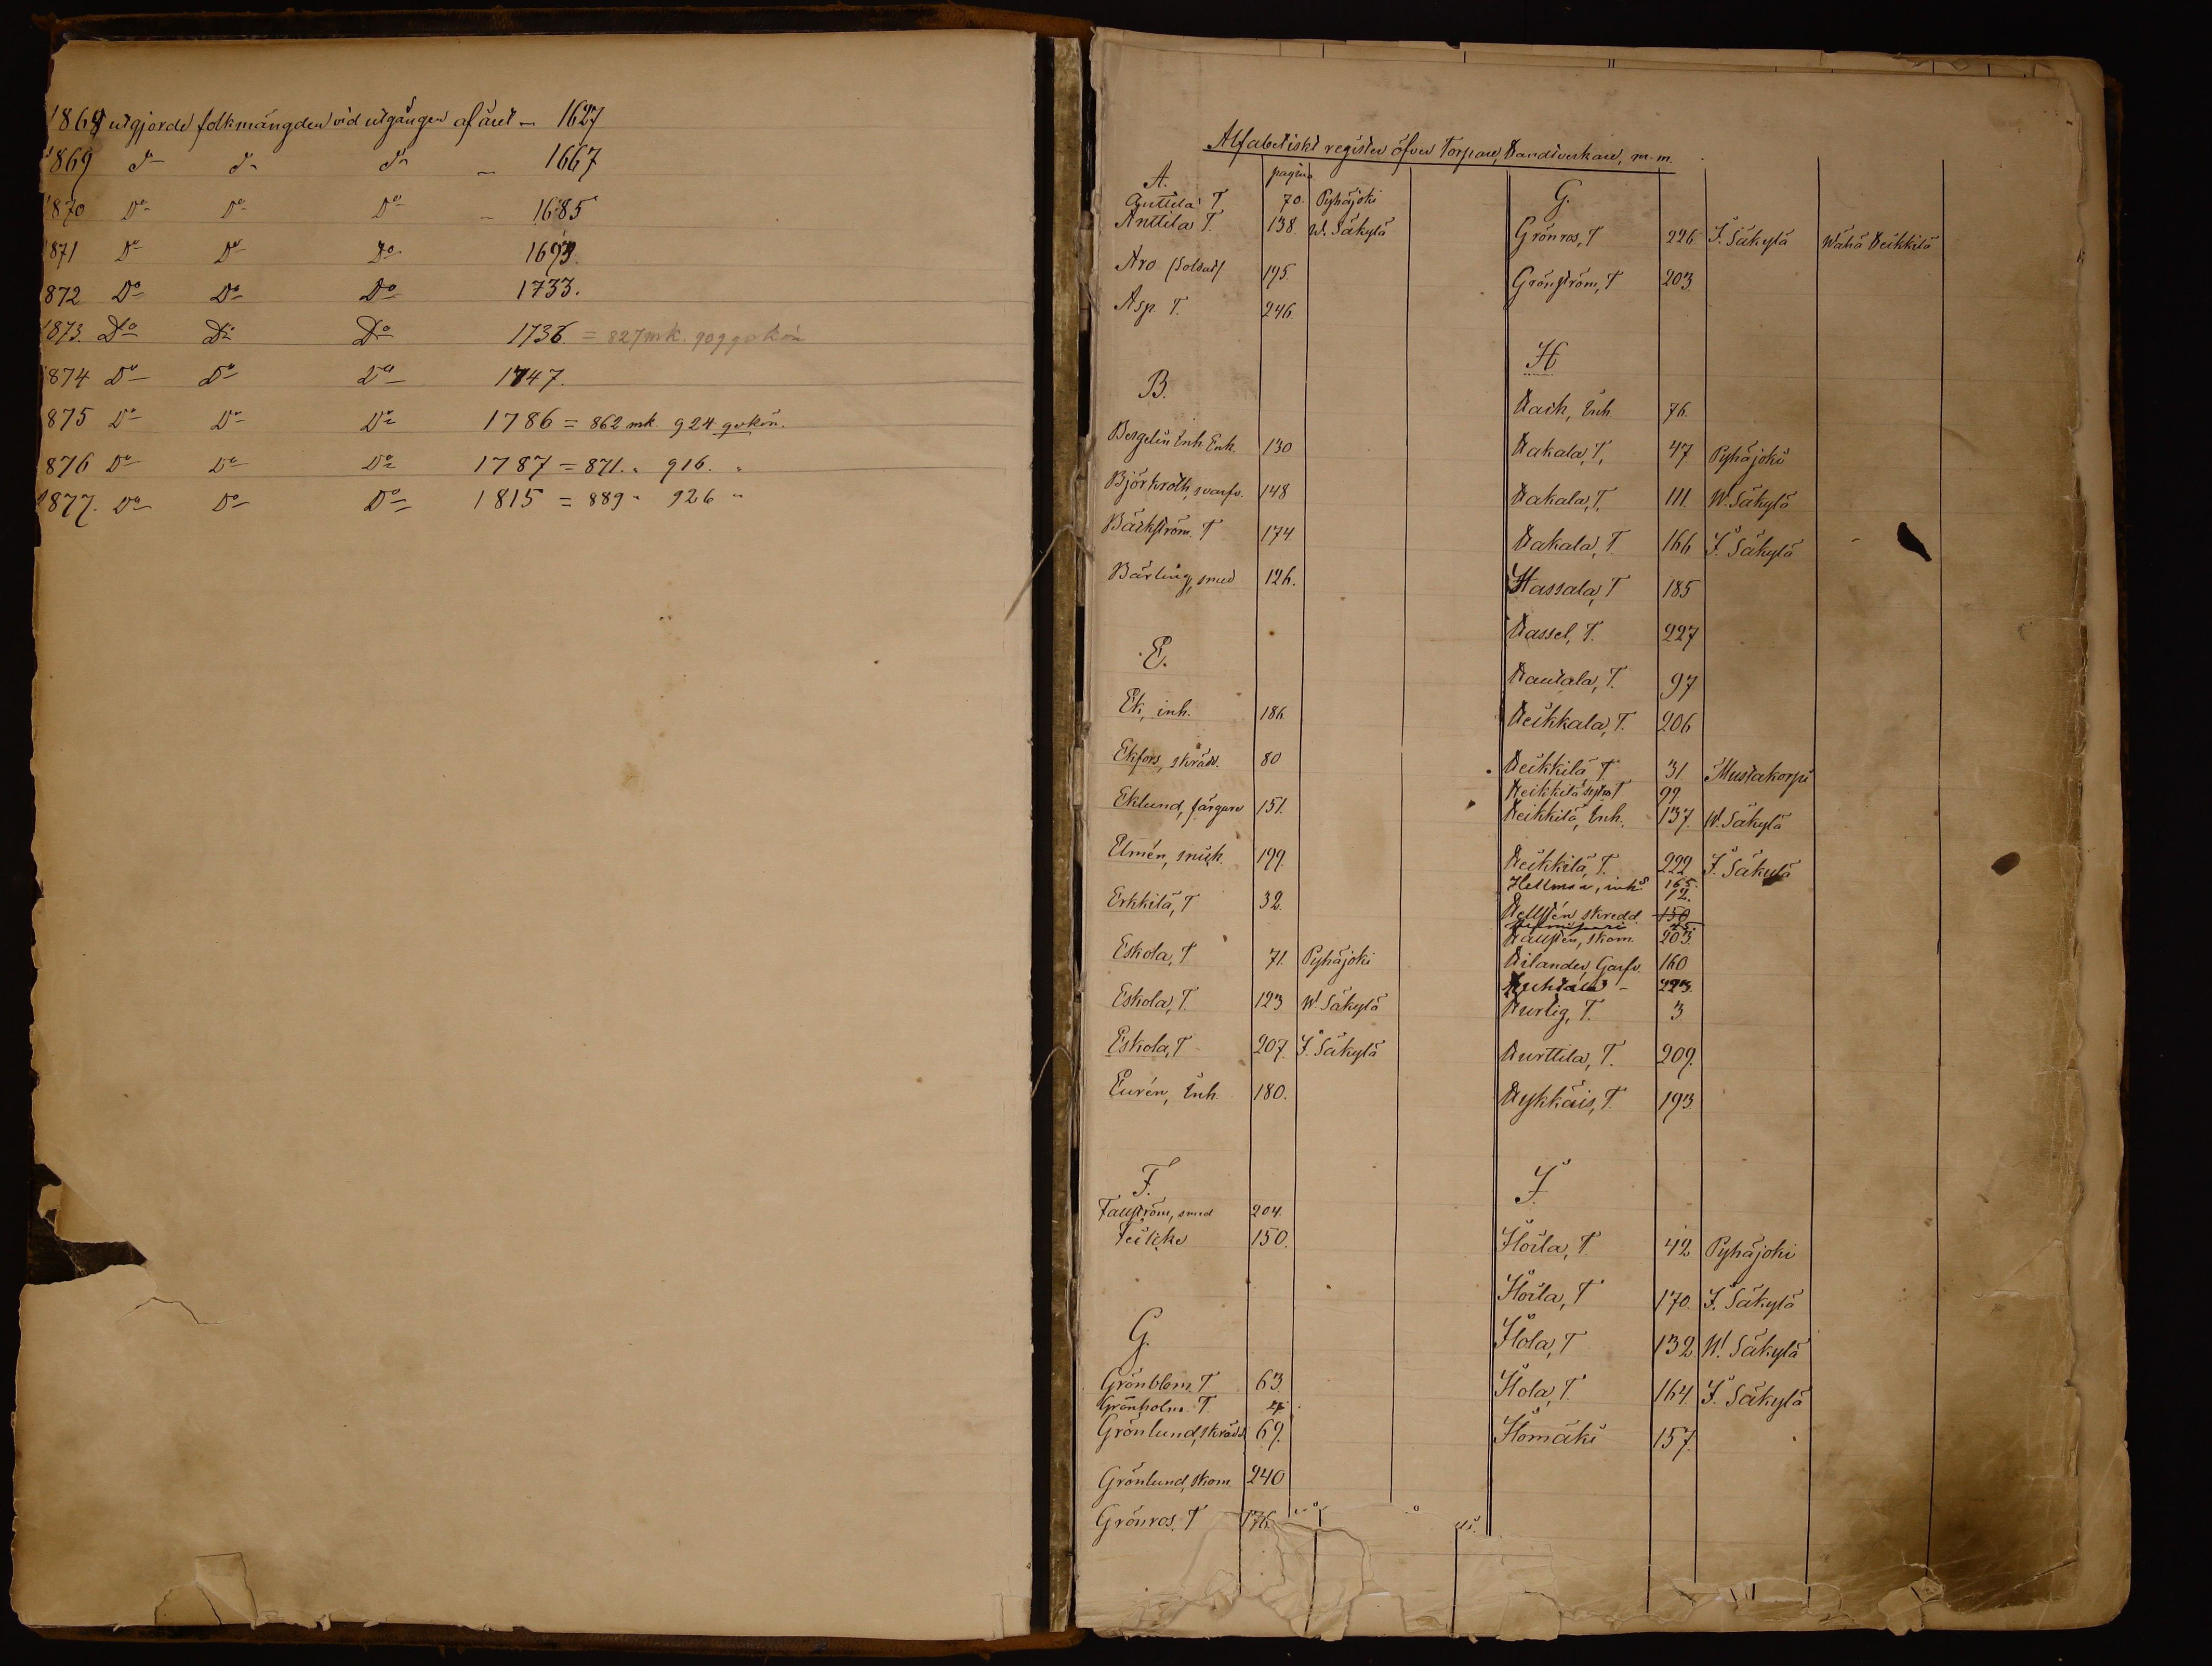 1868 utgjorde folkmängden vid utgången af året — 1627
1869 Do Do Do — 1667
1870 Do Do Do — 1685
1871 Do Do Do 1693.
1872 Do Do Do 1733.
1873. Do Do Do 1736. = 827 mk. 909 qvkön
1874 Do Do Do 1747.
1875 Do Do Do 1786 = 862 mk. 924 qvkön.
1876 Do Do Do 1787 = 871. " 916. "
1877. Do Do Do 1815 = 889 " 926 "
Alfabetiskt register öfver Torpare, Handtverkare, m.m.
A. pagina
Anttila T 70. Pyhäjoki
Anttila T. 138. W. Säkylä
Aro (Soldat) 195
Asp T. 246.
B.
Bergelin Inh. Enk. 130
Björkroth, svarfv. 148
Bäckström. T 174
Bärling, smed 126.
E.
Ek, inh. 186
Ekfors, skrädd. 80
Eklund, färgare 151.
Elmén, snick. 199.
Erkkilä, T 32.
Eskola, T 71. Pyhäjoki
Eskola, T. 123 W. Säkylä
Eskola, T 207. I. Säkylä
Eurén, Inh. 180.
F.
Fallström, smed 204.
150.
G.
Grönblom. T 63
Grönholm. T.
Grönlund, skrädd. 69.
Grönlund, skom. 240
Grönros. T 176.
G.
Grönros, T 226 I. Säkylä Wähä Heikkilä
Grönström, T 203
H
Hack, Inh. 76.
Hakala, T. 47 Pyhäjoki
Hakala, T. 111. W. Säkylä
Hakala, T. 166 I. Säkylä
Hassala, T 185
Hassel, T. 227
Hautala, T. 97
Heikkala, T. 206
Heikkilä, T 31. Mustakorpi
Heikkilä T 99
Heikkilä, Inh. 137. W. Säkylä
Heikkilä, T. 222 I. Säkylä
Hellman, inhs 165.
12.
Hellstén skredd. 150
Hallstén, skom. 203.
Hilander, Garfv. 160
Huhtala - 223.
Hurtig, T. 3
Hurttila, T. 209.
Hykkäis, T. 193
I.
Iloila, T 42 Pyhäjoki
Iloila, T 170. I. Säkylä
Ilola, T 132 W. Säkylä
Ilola, T. 164. I. Säkylä
Ilomäki 157.